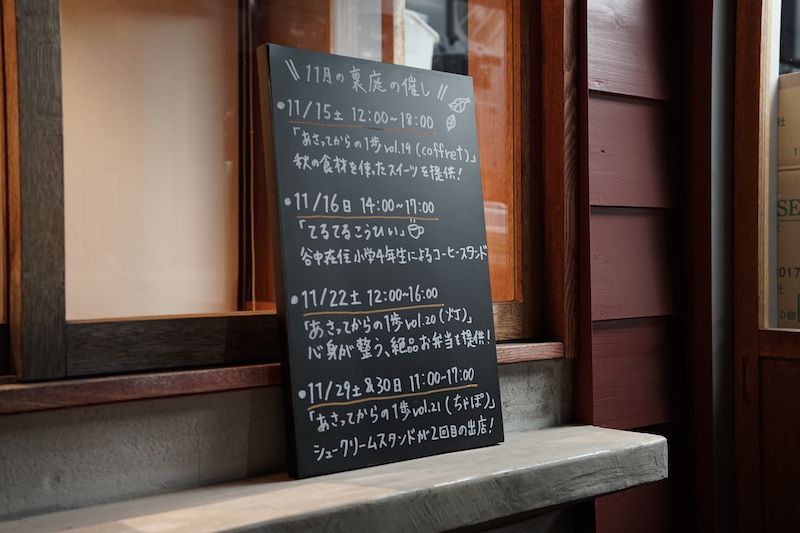 \\ 11月の裏庭の催し //
●11/15土 12:00~18:00
「あさってからの1歩vol.19(coffret)」
秋の食材を使ったスイーツを提供!
●11/16日 14:00~17:00
「てるてるこうひい」
谷中在住小学4年生によるコーヒースタンド
●11/22土 12:00~16:00
「あさってからの1歩vol.20(灯)」
心身が整う、絶品お弁当を提供!
●11/29土&30日 11:00~17:00
「あさってからの1歩vol.21(ちゃぽ)」
シュークリームスタンドが2回目の出店!
SE
017